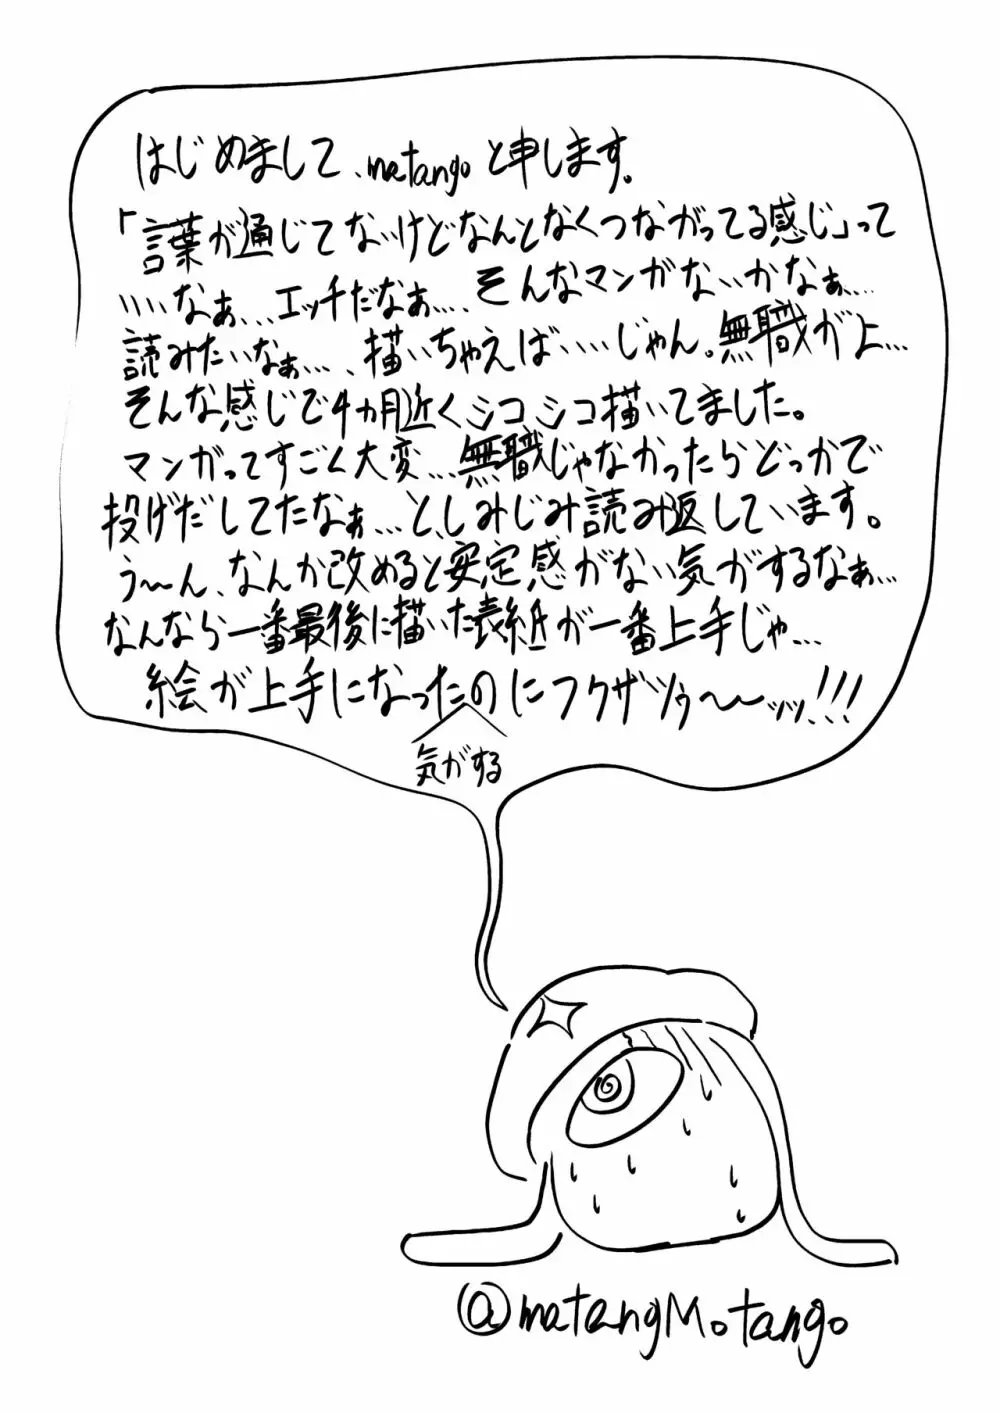 はじめまして、matangoと申します。
「言葉が通じてないけどなんとなくつながってる感じ」って
いいなぁ...エッチだなぁ...そんなマンガないかなぁ...
読みたいなぁ...、描いちゃえば...いいじゃん。無職がよ...
そんな感じで4ヵ月近くシコシコ描いてました。
マンガってすごく大変...無職じゃなかったらどっかで
投げだしてたなぁ...と、しみじみ読み返しています。
う〜ん、なんか改めると安定感がない気がするなぁ...
なんなら一番最後に描いた表紙が一番上手じゃ...
絵が上手になったのにフクザツゥ〜〜ッッ!!!
気がする
@matangMotango